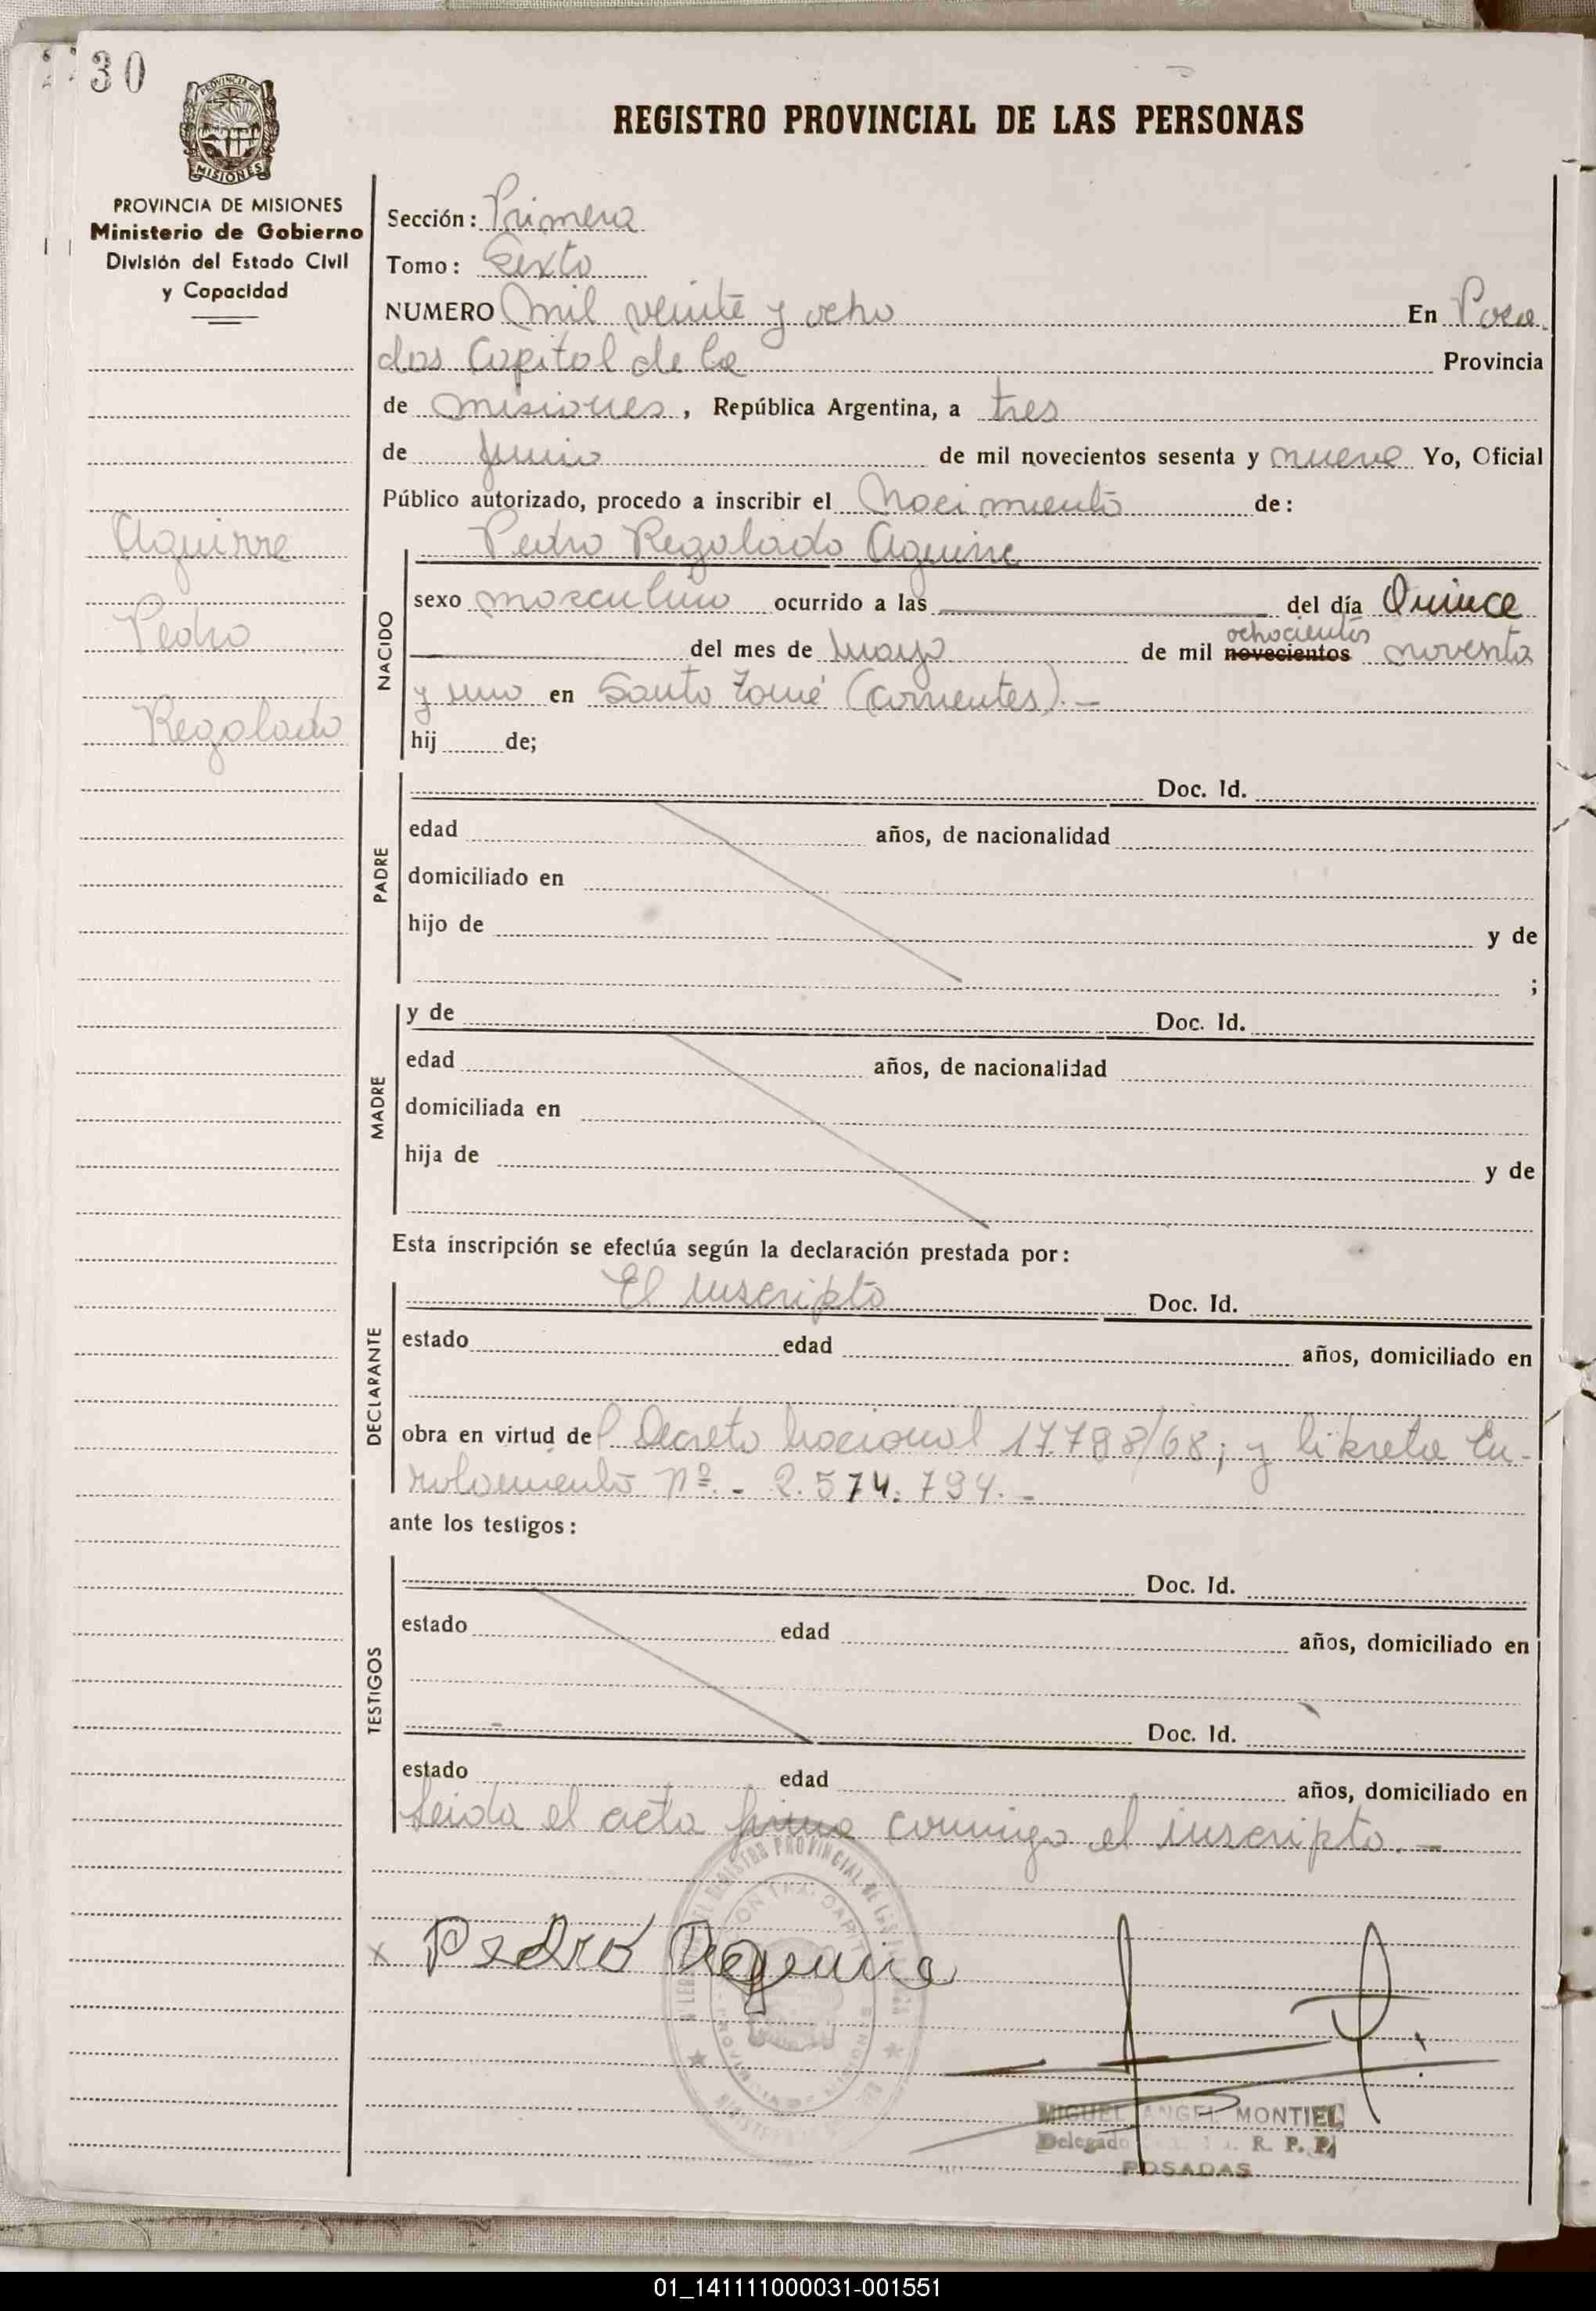 30
PROVINCIA DE
MISIONES
REGISTRO PROVINCIAL DE LAS PERSONAS
PROVINCIA DE MISIONES
Ministerio de Gobierno
División del Estado Civil
y Capacidad
Sección: Primera
Tomo: Sexto
NUMERO Mil veinte y ocho En Posa
das Capital de la Provincia
de Misiones, República Argentina, a tres
de Junio de mil novecientos sesenta y nueve Yo, Oficial
Público autorizado, procedo a inscribir el Nacimiento de:
Aguirre
Pedro
Regalado
Pedro Regalado Aguirre
NACIDO
sexo masculino ocurrido a las del día Quince
ochocientos
del mes de Mayo de mil novecientos noventa
y uno en Santo Tomé (Corrientes).-
hij de;
PADRE
Doc. Id.
edad años, de nacionalidad
domiciliado en
hijo de y de
;
MADRE
y de Doc. Id.
edad años, de nacionalidad
domiciliada en
hija de y de
Esta inscripción se efectúa según la declaración prestada por:
DECLARANTE
El Inscripto Doc. Id.
estado edad años, domiciliado en
obra en virtud del Decreto Nacional 17.798/68; y libreta En-
rolamiento Nº.- 2.574.794.-
ante los testigos:
TESTIGOS
Doc. Id.
estado edad años, domiciliado en
Doc. Id.
estado edad años, domiciliado en
Leida el acta firma conmigo el inscripto.-
x Pedro Aguirre
MIGUEL ANGEL MONTIEL
Delegado R. P. P.
POSADAS
01_141111000031-001551